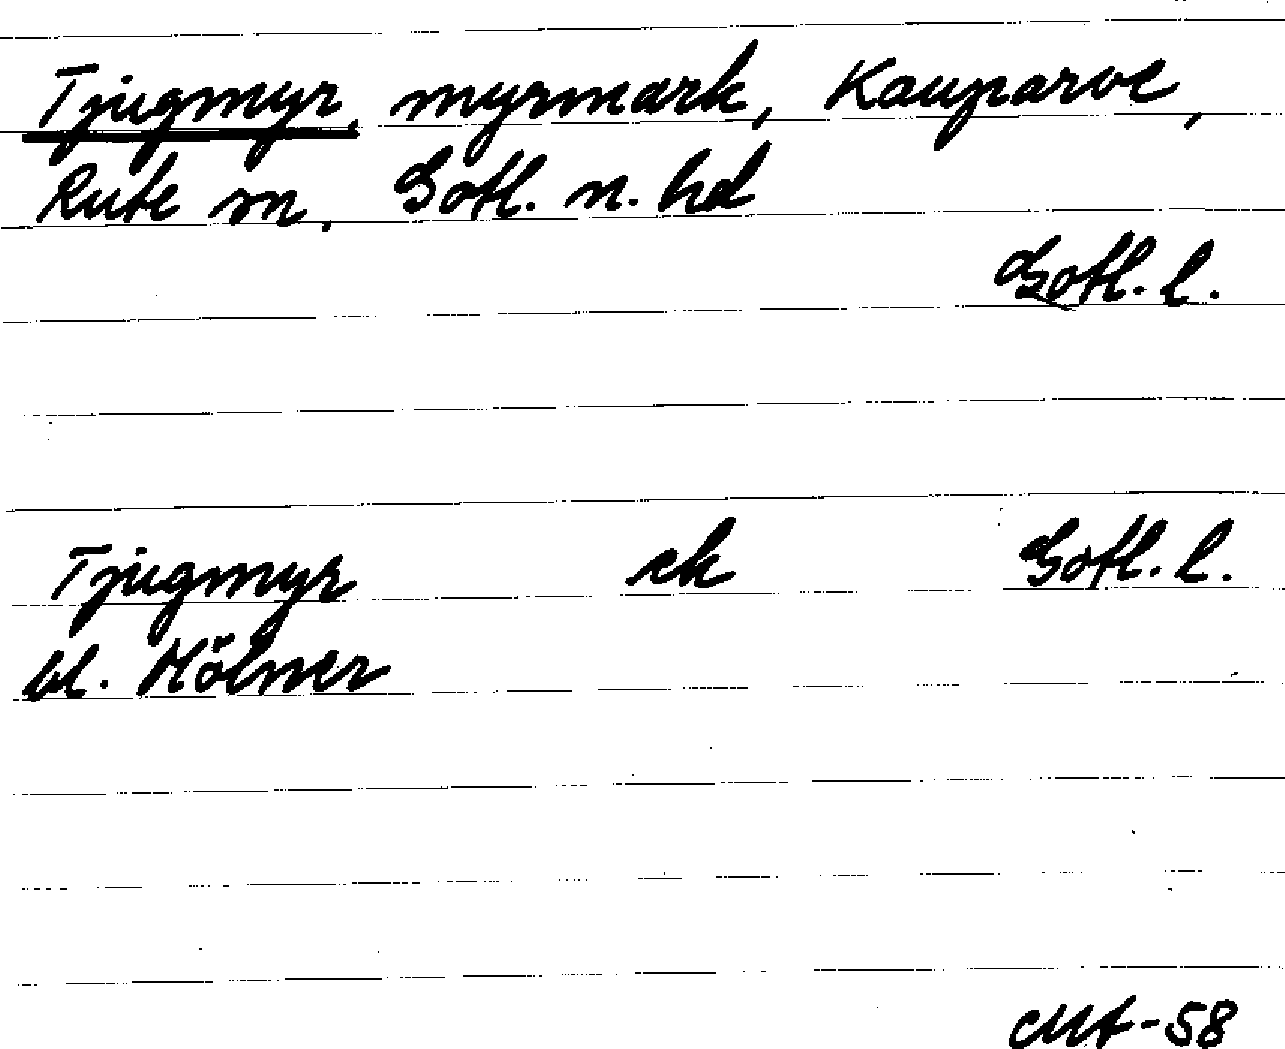 Tjugmyr, myrmark, Kauparve,
Rute sn, Gotl. n. hd
Gotl. l.
Tjugmyr ek Gotl. l.
bl. Mölner
-58